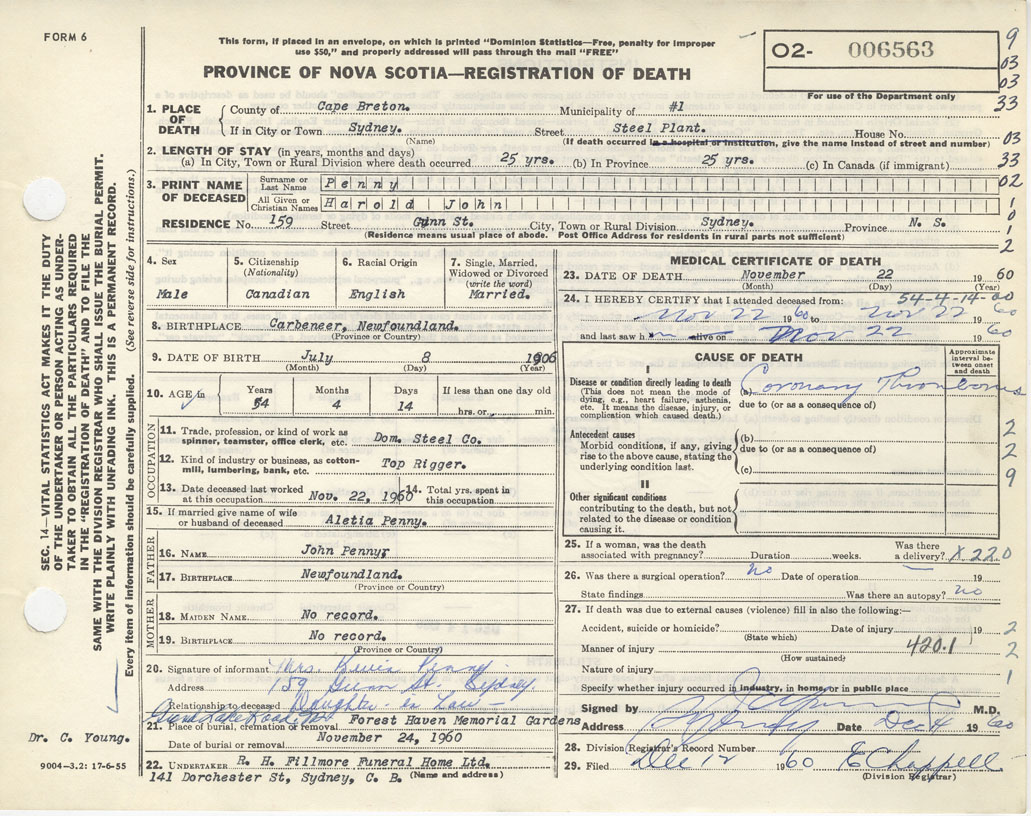 FORM 6
This form, if placed in an envelope, on which is printed "Dominion Statistics—Free, penalty for improper
use $50," and properly addressed will pass through the mail "FREE"
PROVINCE OF NOVA SCOTIA—REGISTRATION OF DEATH
02- 006563
For use of the Department only
9
03
03
33
03
33
02
1
0
1
2
SEC. 14—VITAL STATISTICS ACT MAKES IT THE DUTY
OF THE UNDERTAKER OR PERSON ACTING AS UNDER-
TAKER TO OBTAIN ALL THE PARTICULARS REQUIRED
IN THE "REGISTRATION OF DEATH" AND TO FILE THE
SAME WITH THE DIVISION REGISTRAR WHO SHALL ISSUE THE BURIAL PERMIT.
WRITE PLAINLY WITH UNFADING INK. THIS IS A PERMANENT RECORD.
Every item of information should be carefully supplied. (See reverse side for instructions.)
Dr. C. Young.
9004—3.2: 17-6-55
1. PLACE OF DEATH
County of Cape Breton. Municipality of #1
If in City or Town Sydney. Street Steel Plant. House No.
(Name) (If death occurred in a hospital or institution, give the name instead of street and number)
2. LENGTH OF STAY (in years, months and days)
(a) In City, Town or Rural Division where death occurred 25 yrs. (b) In Province 25 yrs. (c) In Canada (if immigrant)
3. PRINT NAME OF DECEASED
Surname or Last Name Penny
All Given or Christian Names Harold John
RESIDENCE No. 159 Street Gunn St. City, Town or Rural Division Sydney. Province N. S.
(Residence means usual place of abode. Post Office Address for residents in rural parts not sufficient)
4. Sex
Male
5. Citizenship
(Nationality)
Canadian
6. Racial Origin
English
7. Single, Married,
Widowed or Divorced
(write the word)
Married.
8. BIRTHPLACE Carbeneer, Newfoundland.
(Province or Country)
9. DATE OF BIRTH July 8 1906
(Month) (Day) (Year)
10. AGE in
Years Months Days If less than one day old
54 4 14 hrs. or min.
OCCUPATION
11. Trade, profession, or kind of work as
spinner, teamster, office clerk, etc. Dom. Steel Co.
12. Kind of industry or business, as cotton-
mill, lumbering, bank, etc. Top Rigger.
13. Date deceased last worked
at this occupation Nov. 22, 1960
14. Total yrs. spent in
this occupation
15. If married give name of wife
or husband of deceased Aletia Penny.
FATHER
16. NAME John Penny
17. BIRTHPLACE Newfoundland.
(Province or Country)
MOTHER
18. MAIDEN NAME No record.
19. BIRTHPLACE No record.
(Province or Country)
20. Signature of informant Mrs. Kevin Penny.
Address 159 Gunn St. Sydney.
Relationship to deceased Daughter-in Law—
21. Place of burial, cremation or removal Forest Haven Memorial Gardens
Date of burial or removal November 24, 1960
22. UNDERTAKER R. H. Fillmore Funeral Home Ltd.
141 Dorchester St, Sydney, C. B. (Name and address)
MEDICAL CERTIFICATE OF DEATH
23. DATE OF DEATH November 22 1960
(Month) (Day) (Year)
54-4-14-00
24. I HEREBY CERTIFY that I attended deceased from:
Nov 22 1960 to Nov 22 1960
and last saw h alive on Nov 22 1960
CAUSE OF DEATH
Approximate
interval be-
tween onset
and death
I
Disease or condition directly leading to death
(This does not mean the mode of
dying, e.g., heart failure, asthenia,
etc. It means the disease, injury, or
complication which caused death.)
(a) Coronary Thrombosis
due to (or as a consequence of)
Antecedent causes
Morbid conditions, if any, giving
rise to the above cause, stating the
underlying condition last.
(b)
due to (or as a consequence of)
(c)
2
2
9
II
Other significant conditions
contributing to the death, but not
related to the disease or condition
causing it.
25. If a woman, was the death
associated with pregnancy? Duration weeks. Was there
a delivery? X220
26. Was there a surgical operation? no Date of operation — 19
State findings Was there an autopsy? no
27. If death was due to external causes (violence) fill in also the following:—
Accident, suicide or homicide? Date of injury 19 2
(State which)
Manner of injury 420.1 2
(How sustained)
Nature of injury 1
Specify whether injury occurred in industry, in home, or in public place
Signed by M.D.
Address Sydney Date Dec 4 1960
28. Division Registrar's Record Number
29. Filed Dec 12 1960 E Chappell
(Division Registrar)